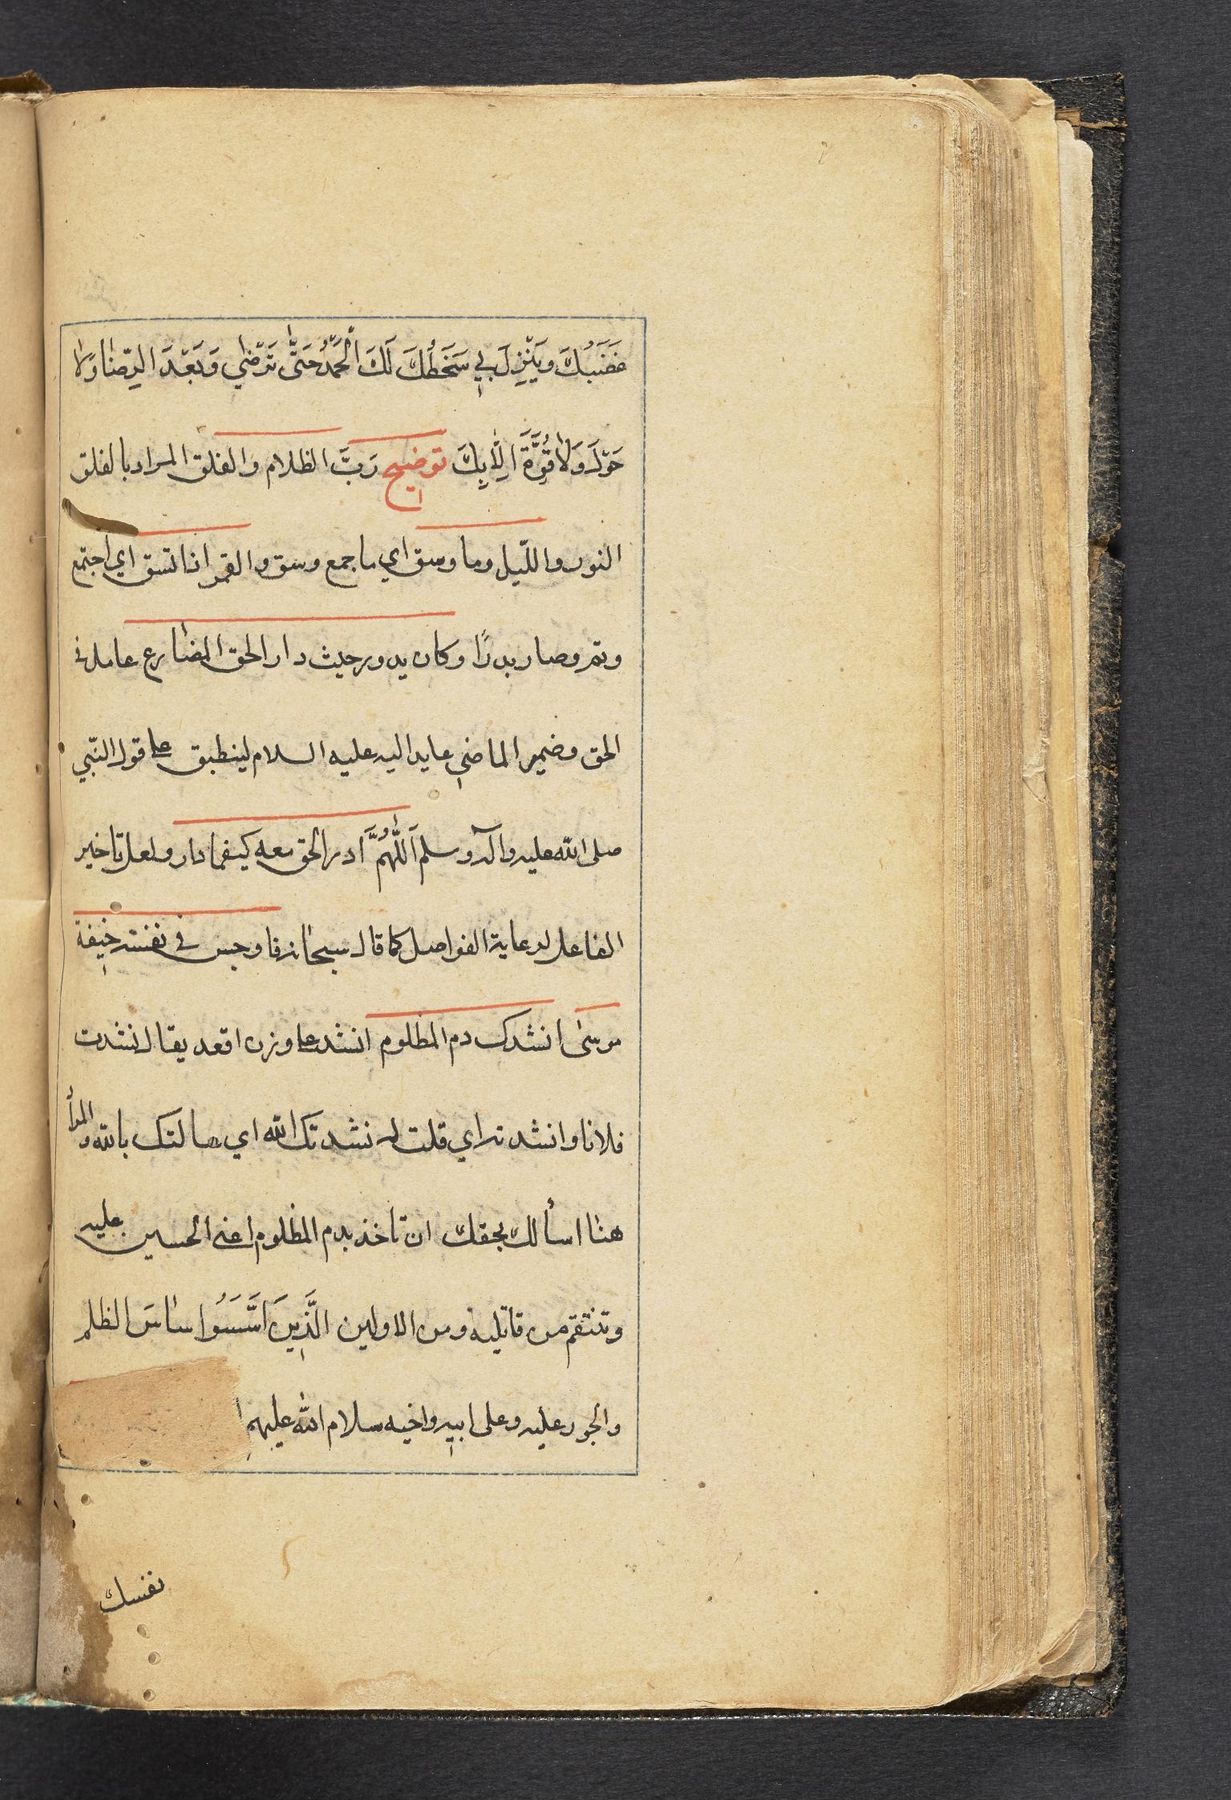 غَضَبُكَ وَيَنْزِلَ بِي سَخَطُكَ لَكَ الْحَمْدُ حَتّىٰ تَرْضٰي وَبَعْدَ الرِّضَا وَلَا
حَوْلَ وَلَا قُوَّةَ اِلَّا بِكَ توضيح رَبَّ الظلام والفلق المراد بالفلق
النور والليل وما وسق اي ما جمع وسق والقمر اذا اتسق اي اجتمع
وتم وصار بدرًا وكان يدور حيث دار الحق المضارع عامل في
الحق وضمير الماضي عايد اليه عليه السلام لينطبق على قول النّبي
صلى الله عليه وآله وسلم اَللّٰهُمَّ ادر الحق معه كيفما دار ولعل تاخير
الفاعل لرعاية الفواصل كما قال سبحانه فاوجس في نفسه خيفة
موسىٰ انشدك دم المظلوم انشد على وزن اقعد يقال نشدت
فلانا وانشدته اي قلت له نشدتك الله اي سالتك بالله والمرأ
هنا اسألك بحقك ان تاخذ بدم المظلوم اعنى الحسين عليه
وتنتقم من قاتليه ومن الاولين الَّذِينَ اَسَّسَوُا سٰاسَ الظلم
والجور عليه وعلى ابيه واخيه سلام الله عليهم
نفسك